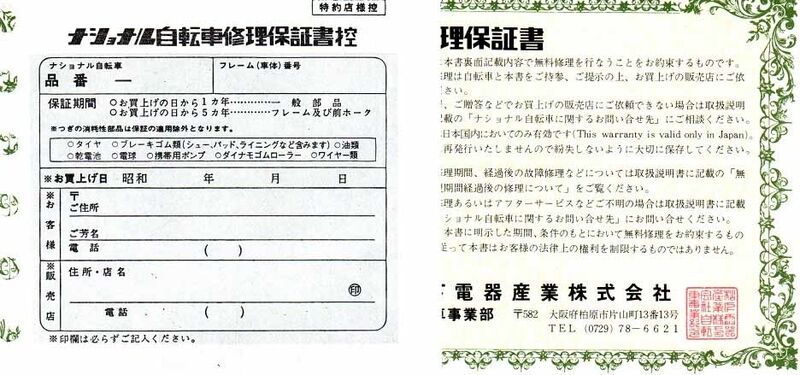 特約店様控
ナショナル自転車修理保証書控
ナショナル自転車
品番 —
フレーム(車体)番号
保証期間
○お買上げの日から1カ年…………一般部品
○お買上げの日から5カ年…………フレーム及び前ホータ
※つぎの消耗性部品は保証の適用除外となります。
○タイヤ ○ブレーキゴム類(シュー、パッド、ライニングなど含みます) ○油類
○乾電池 ○電球 ○携帯用ポンプ ○ダイナモゴムローラー ○ワイヤー類
※お買上げ日 昭和 年 月 日
※お客様
〒
ご住所
ご芳名
電話 ( )
※販売店
住所・店名
印
電話 ( )
※印欄は必らずご記入ください。
理保証書
本書裏面記載内容で無料修理を行なうことをお約束するものです。
理は自転車と本書をご持参、ご提示の上、お買上げの販売店にご依
さい。
、ご贈答などでお買上げの販売店にご依頼できない場合は取扱説明
載の「ナショナル自転車に関するお問い合せ先」にご相談ください。
日本国内においてのみ有効です(This warranty is valid only in Japan)。
再発行いたしませんので紛失しないように大切に保存してください。
理期間、経過後の故障修理などについては取扱説明書に記載の「無
期間経過後の修理について」をご覧ください。
理あるいはアフターサービスなどご不明の場合は取扱説明書に記載
ショナル自転車に関するお問い合せ先」にお問い合せください。
本書に明示した期間、条件のもとにおいて無料修理をお約束するもの
従って本書はお客様の法律上の権利を制限するものではありません。
下電器産業株式会社
車事業部 〒582 大阪府柏原市片山町13番13号
TEL (0729) 78-6621